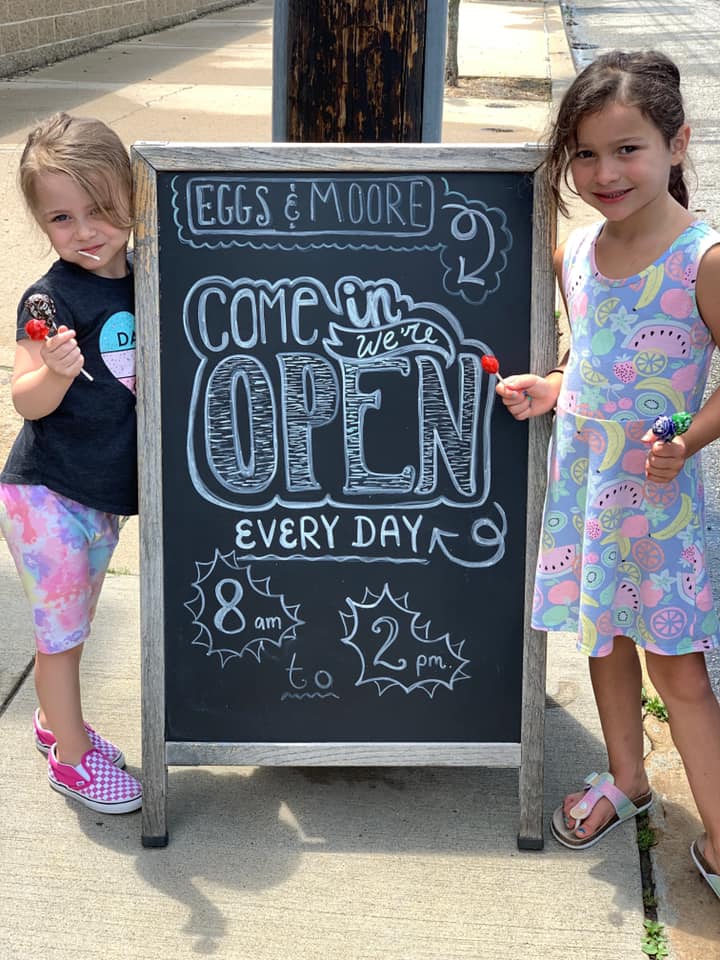 EGGS & MOORE
COME in
We're
OPEN
EVERY DAY
8 am
to
2 pm.
DA